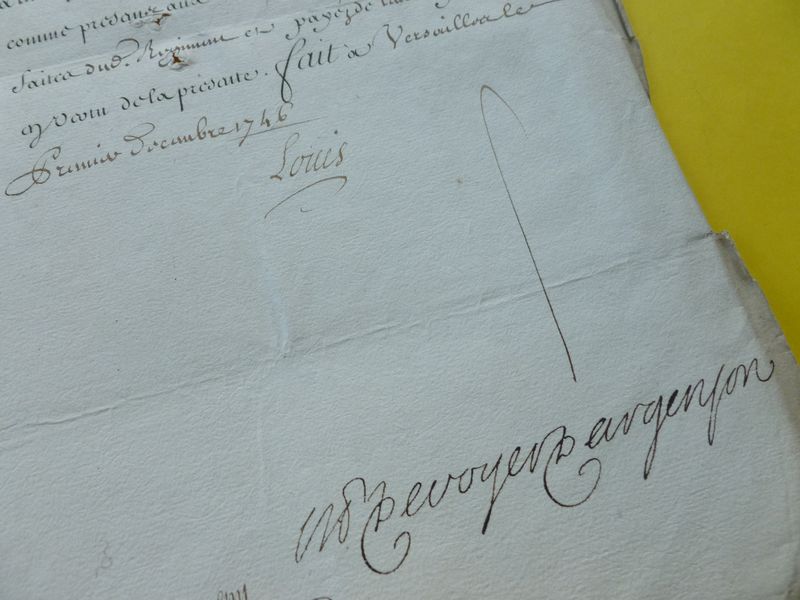 comme presance aux
faitea dud. Regiment et payez de
en vertu de la presente. fait a Versailles le
Premier Decembre 1746
Louis
M P De voyer D argenson